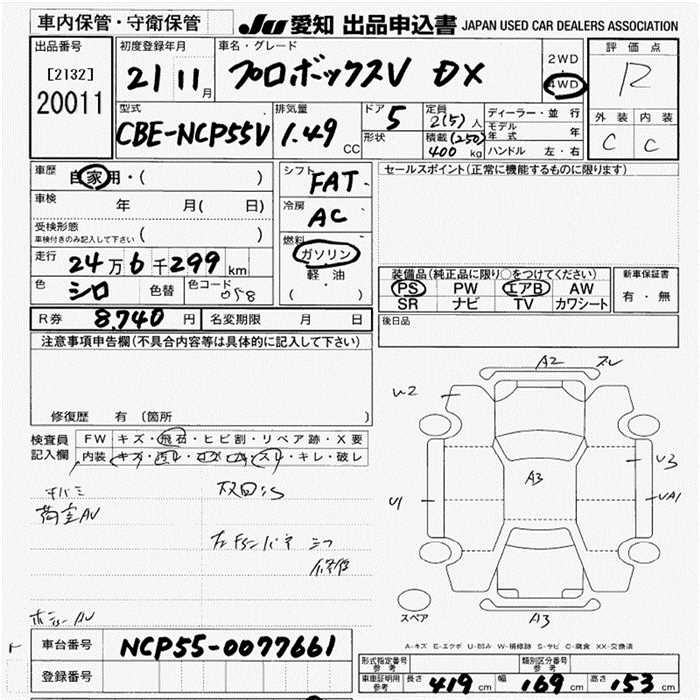 車内保管・守衛保管
JU 愛知 出品申込書 JAPAN USED CAR DEALERS ASSOCIATION
出品番号
[2132]
20011
初度登録年月
21 11月
車名・グレード
プロボックスV DX
2WD
4WD
評価点
R
外装 内装
C C
型式
CBE-NCP55V
排気量
1.49 CC
ドア 5
形状
定員 2(5)人
積載 (250)
400 kg
ディーラー・並行
モデル年式 年
ハンドル 左・右
車歴
自家用・( )
車検 年 月( 日)
受検形態
車検付きのみ記入して下さい ( )
走行 24万6千299km
色 シロ 色替 色コード 058
シフト FAT
冷房 AC
燃料
ガソリン
軽・油
( ・ )
セールスポイント(正常に機能するものに限ります)
装備品(純正品に限り○をつけてください)
PS PW エアB AW
SR ナビ TV カワシート
新車保証書
有・無
R券 8,740円 名変期限 月 日
後日品
注意事項申告欄(不具合内容等は具体的に記入して下さい)
修復歴 有(箇所 )
検査員記入欄
FW キズ・飛石・ヒビ割・リペア跡・X要
内装 キズ・汚レ・コゲ・穴・スレ・キレ・破レ
キバミ
荷室AU
A2 スレ
U2
U1
A3
U3
UA1
A3
スペア
A-キズ E-エクボ U-凹み W-補修跡 S-サビ C-腐食 XX-交換済
車台番号 NCP55-0077661
登録番号
形式指定番号 参考
類別区分番号 参考
車庫証明用 参考 長さ 419cm 幅 169cm 高さ 153cm